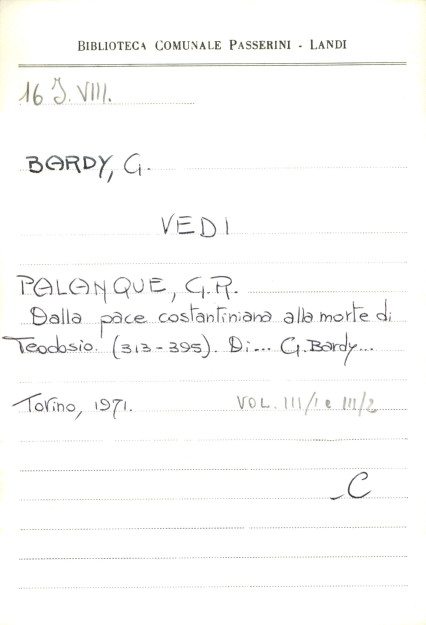 BIBLIOTECA COMUNALE PASSERINI - LANDI
16 J. VIII.
BARDY, G.
VEDI
PALANQUE, G.R.
Dalla pace costantiniana alla morte di
Teodosio. (313-395). Di... G. Bardy...
Torino, 1971. VOL. III/1 e III/2
C